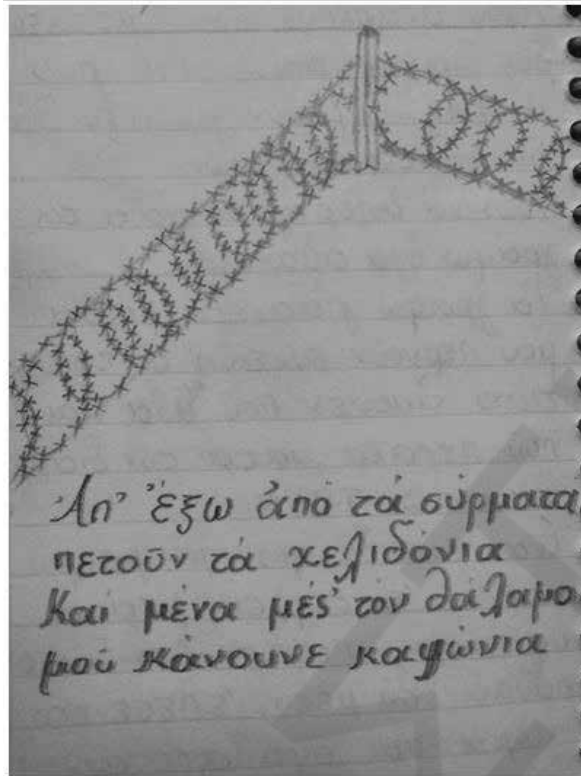 Ἀπ' ἔξω ἀπό τά σύρματα
πετοῦν τά χελιδόνια
Καί μένα μές' τόν θάλαμο
μοῦ κάνουνε καψώνια